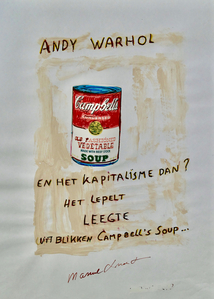 ANDY WARHOL
Campbell's
VEGETABLE
MADE WITH BEEF STOCK
SOUP
EN HET KAPITALISME DAN?
HET LEPELT
LEEGTE
UIT BLIKKEN CAMPBELL'S SOUP...